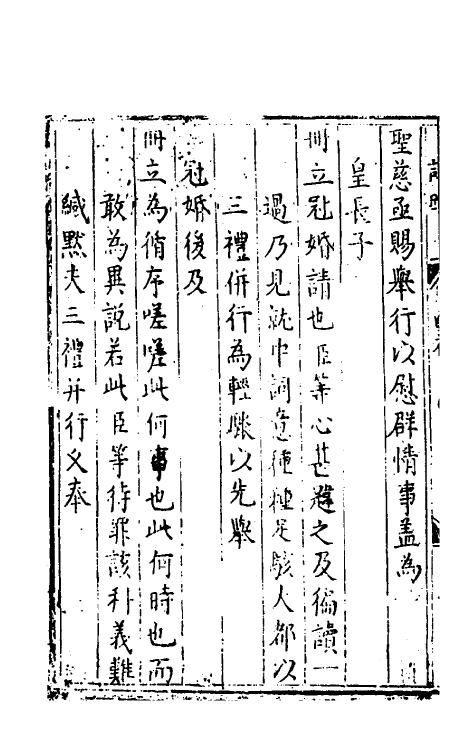 聖慈亟賜舉行以慰群情事盖為
皇長子
冊立冠婚請也臣等心甚韙之及徧讀一
過乃見就中詞意種種足駭人都以
三禮併行為輕賤以先舉
冠婚後及
冊立為循序嗟嗟此何事也此何時也而
敢為異說若此臣等待罪該科義難
緘默夫三禮并行又奉